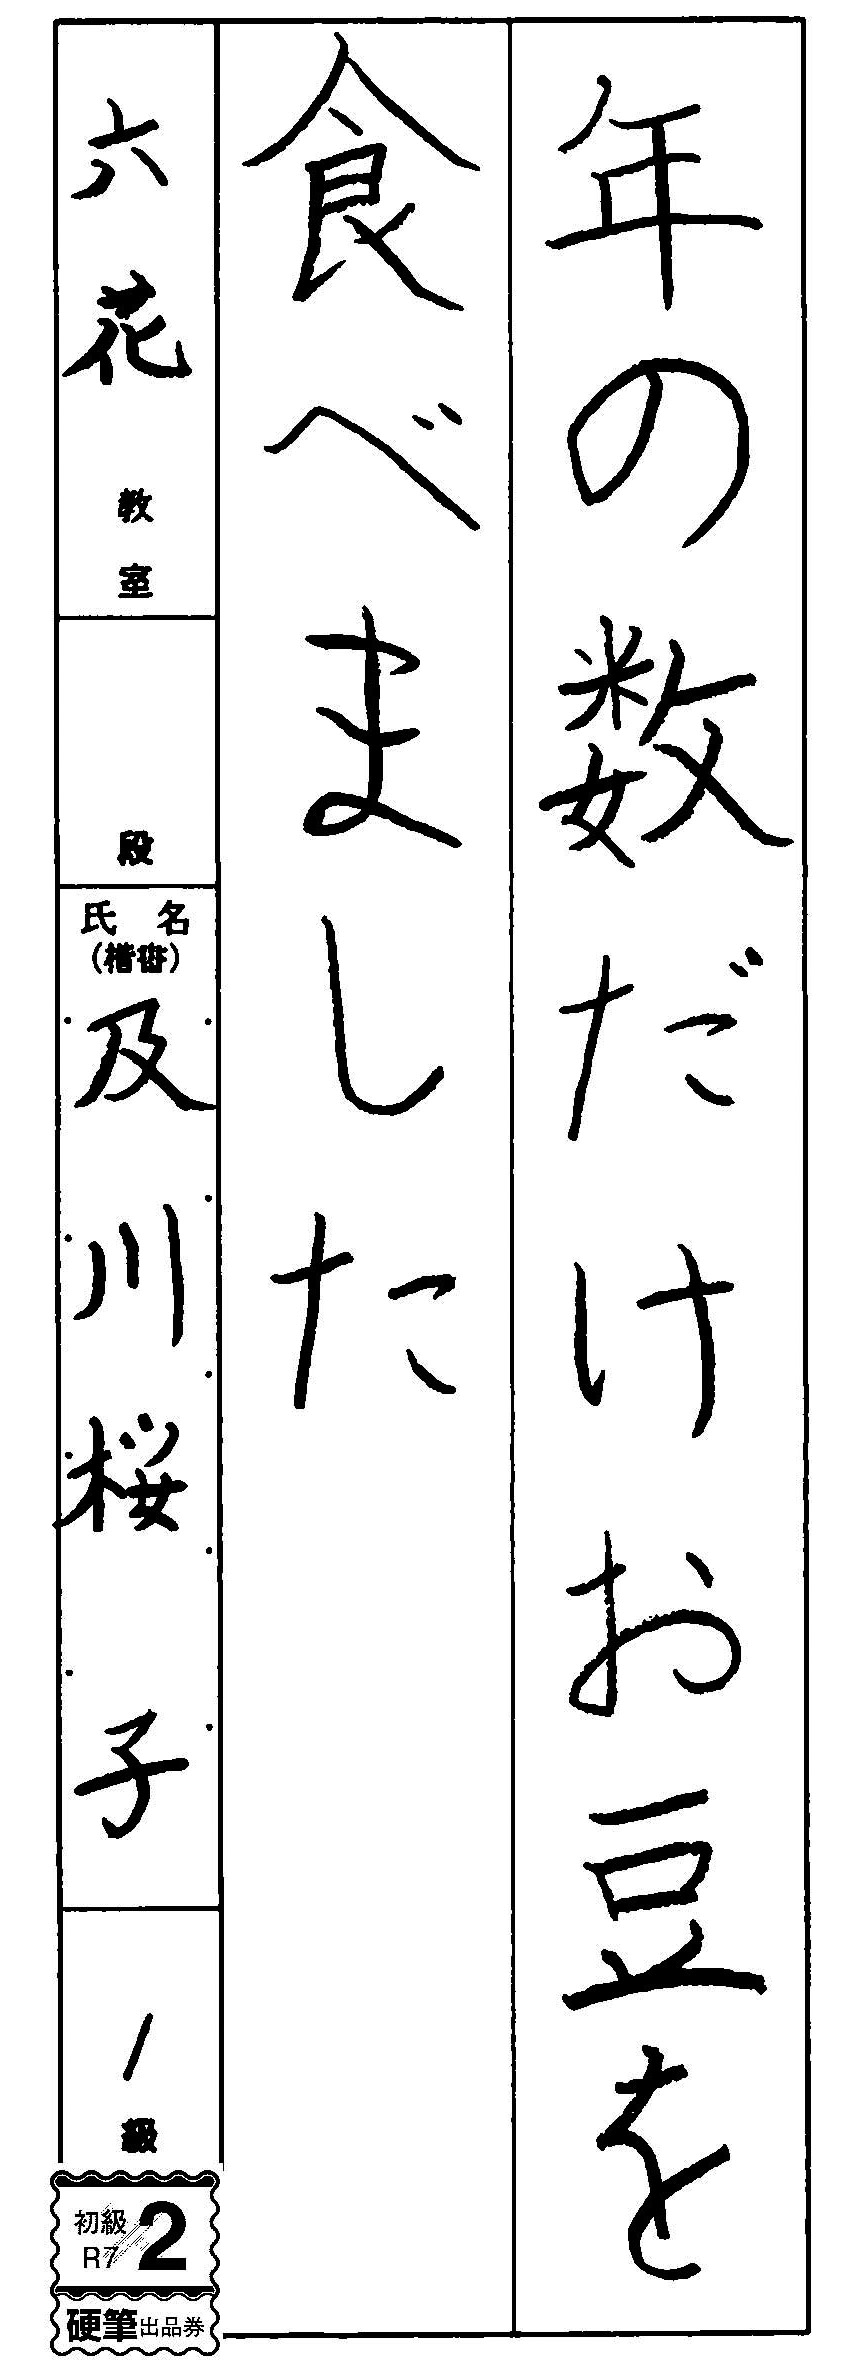 年の数だけお豆を
食べました
六花教室
段
氏名
(楷書)
及川桜子
1級
初級
R7
2
硬筆出品券